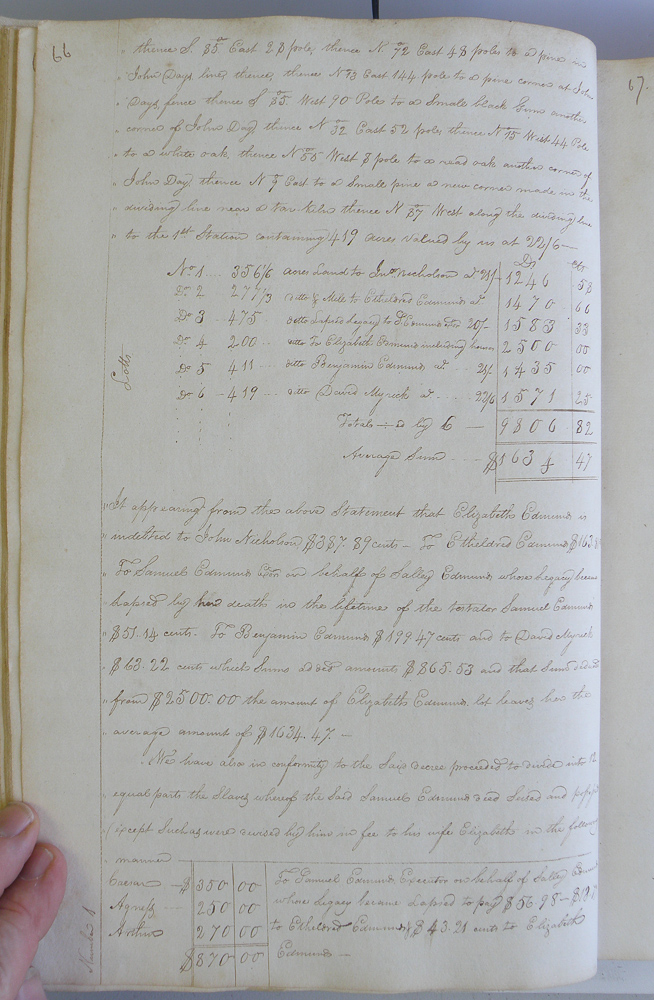 66
67.
thence S. 85 East 28 poles, thence N. 72 East 48 poles to a pine in
John Days line, thence, thence N 73 East 144 pole to a pine corner at John
Days, fence thence S 85 West 90 Poles to a Small black Gum another
corner of John Day, thence N 32 East 52 poles thence N 75 West 44 Pole
to a white oak, thence N 55 West 8 pole to a read oak another corner of
John Day thence N 9 East to a Small pine a new corner made in the
dividing line near a tar kiln thence N 87 West along the dividing line
to the 1st Station containing 419 acres valued by us at 22/6—
Drs cts
No 1 ... 356 1/6 acres Land to Jno. Nicholson at 21/ 1246 58
Do 2 277 1/3 ditto & Mill to Etheldred Edmunds at 1470 66
Do 3 - 475 ditto Lapsed Legacy to S Edmunds 20/- 1583 33
Do 4 200 ditto To Elizabeth Edmunds including houses 2500 00
Do 5 411 ditto Benjamin Edmunds at .. 21/ 1435 00
Do 6 - 419 ditto David Myrick at .... 22/6 1571 25
Lotts
Totals ÷ d by 6 — 9806 82
Average Sum .... $1634 47
It appearing from the above Statement that Elizabeth Edmunds is
indebted to John Nicholson $387. 89 cents — To Etheldred Edmunds $163.
To Samuel Edmunds on behalf of Salley Edmunds whose legacy became
Lapsed by her death in the lifetime of the testator Samuel Edmunds
$51.14 cents. To Benjamin Edmunds $199 47 cents and to David Myrick
$63.22 cents which Sums added amounts $865.53 and that Sum deducted
from $2500.00 the amount of Elizabeth Edmunds, lot leaves her the
average amount of $1634.47. —
We have also in conformity to the Said decree proceeded to divide into
equal parts the Slaves whereof the Said Samuel Edmunds died Seised and
(except Such as were devised by him in fee to his wife Elizabeth in the following
manner
Caesar — $ 350 00 To Samuel Edmunds Executor on behalf of Salley
Agness — 250 00 whose Legacy became Lapsed to pay $56 98 —
Arthur 270 00 to Etheldred Edmunds & $43.21 cents to Elizabeth
$870 00 Edmunds —
Number 8